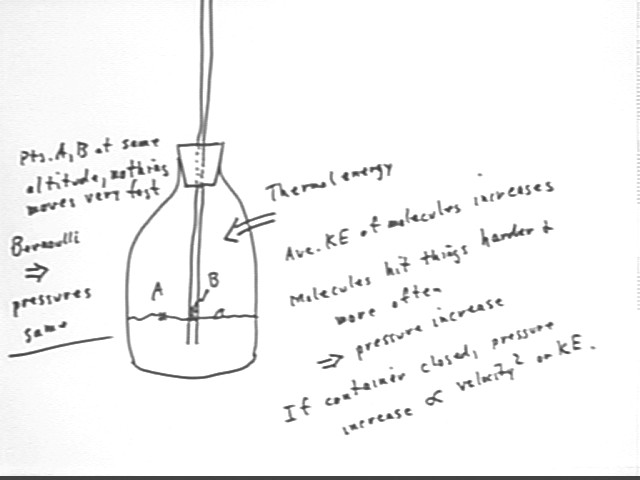 Pts. A, B at same
altitude, nothing
moves very fast
Bernoulli
⇒
pressures
same
A
B
Thermal energy
Ave. KE of molecules increases
Molecules hit things harder &
more often
⇒ pressure increase
If container closed, pressure
increase ∝ velocity² or KE.